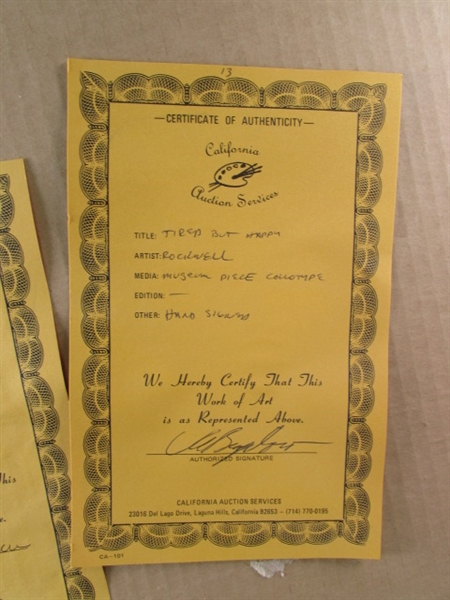 13
—CERTIFICATE OF AUTHENTICITY—
California
Auction Services
TITLE: TIRED BUT HAPPY
ARTIST: ROCKWELL
MEDIA: MUSEUM PIECE COLLOTYPE
EDITION: —
OTHER: HAND SIGNED
We Hereby Certify That This
Work of Art
is as Represented Above.
AUTHORIZED SIGNATURE
CALIFORNIA AUCTION SERVICES
23016 Del Lago Drive, Laguna Hills, California 92653 – (714) 770-0195
CA-101
This
e.